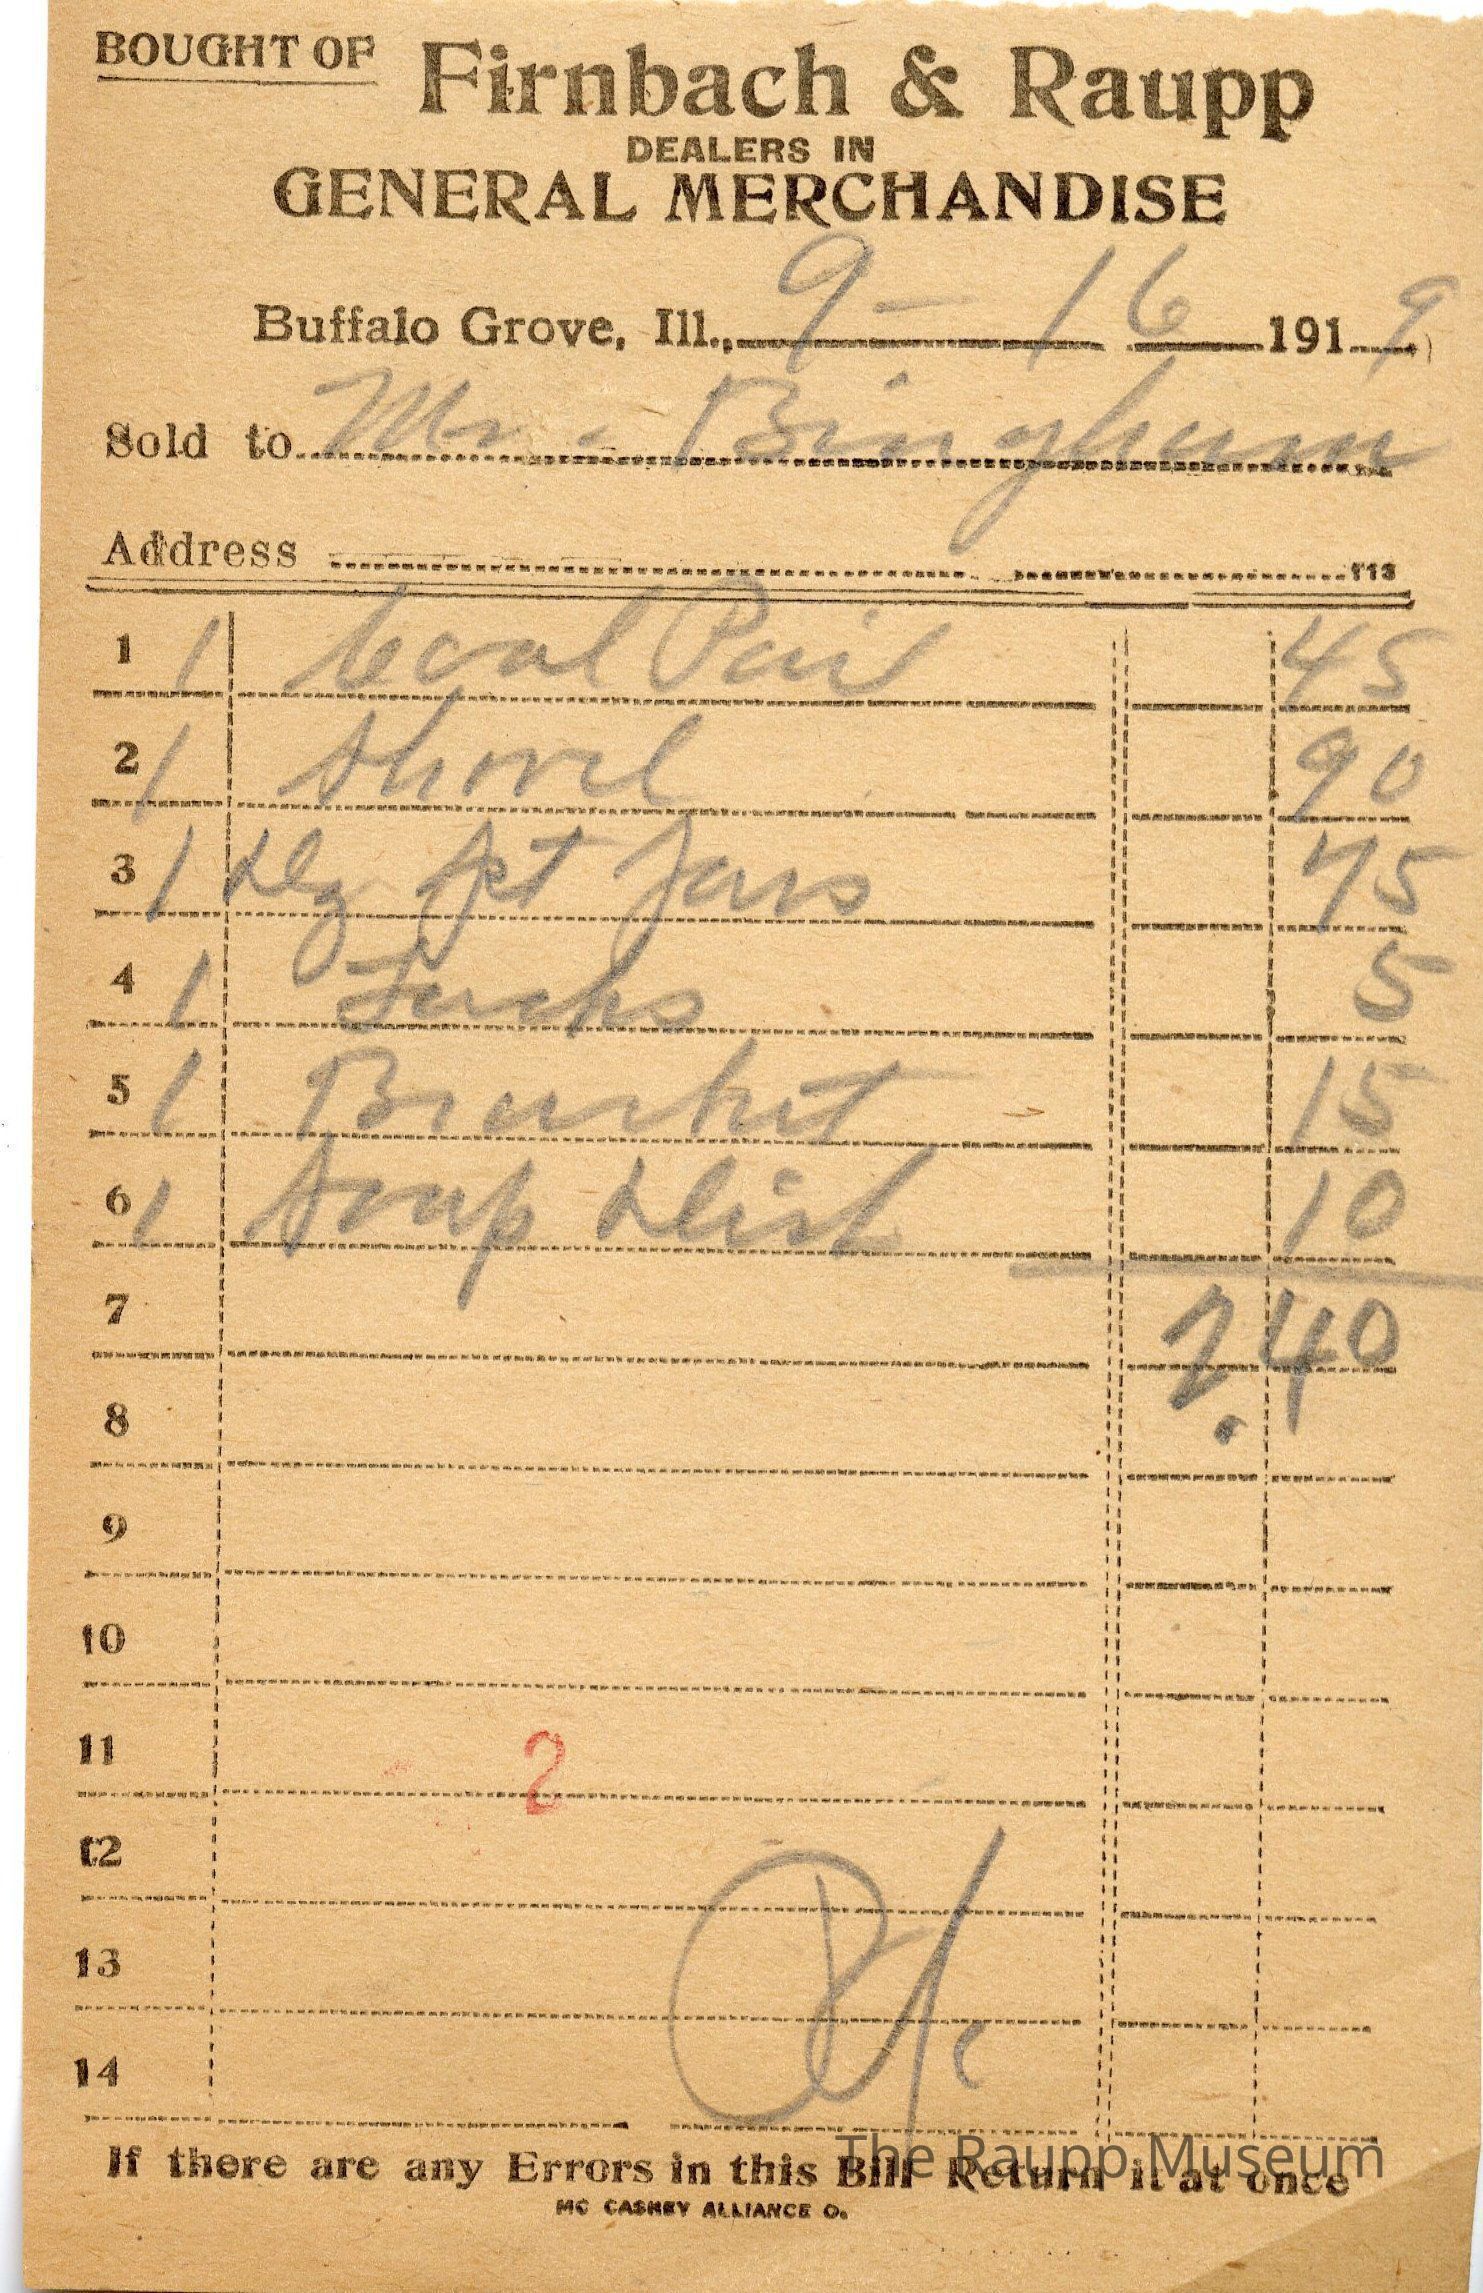 BOUGHT OF Firnbach & Raupp
DEALERS IN
GENERAL MERCHANDISE
Buffalo Grove, Ill., 9-16 1919
Sold to Mr. Bingham
Address 113
1 1 Coal Pail 45
2 1 Shovel 90
3 1 Dz Jars 75
4 1 Tacks 5
5 1 Bracket 15
6 1 Soap Dish 10
7 2.40
8
9
10
11 2
12
13
14
If there are any Errors in this Bill Return it at once
The Raupp Museum
MC CASKEY ALLIANCE O.